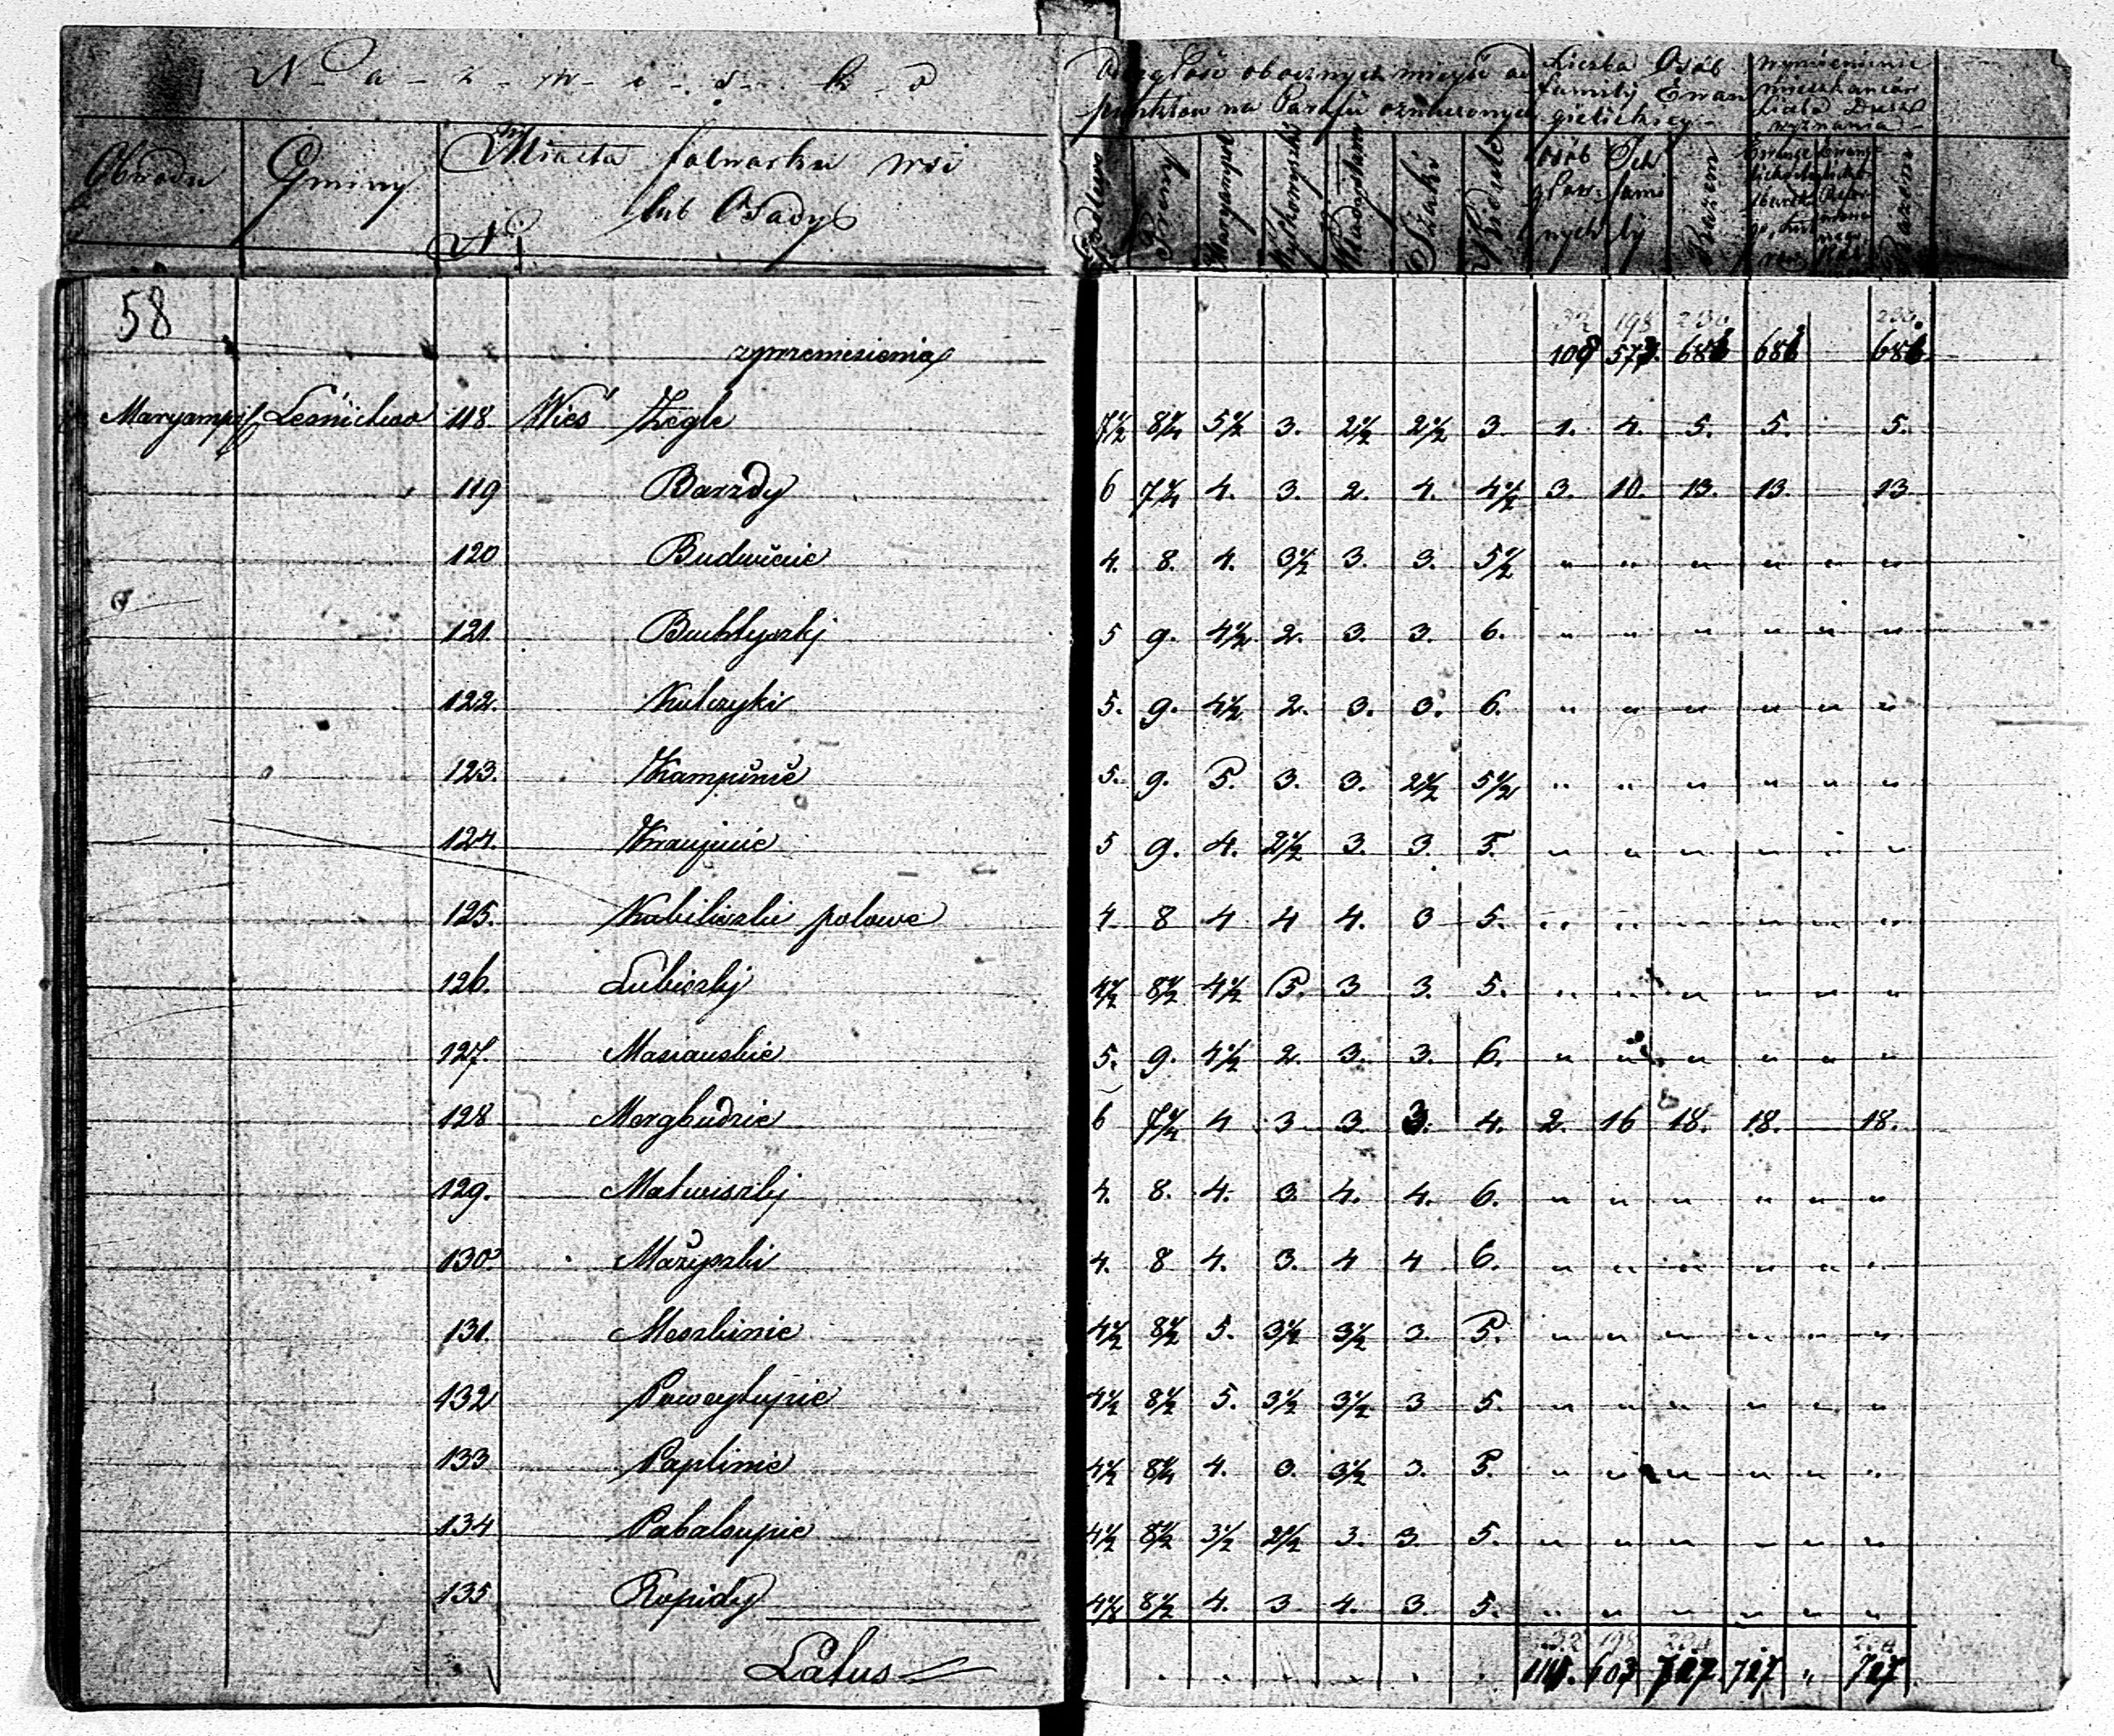 N a z w i s k o
Odległość obocznych mieysc od
punktów na Parafii oznaczonych
Liczba Osób
familij Ewan
gielickiey
wymienienie
mieszkanców
Liczba Dusz
wyznania
Obwodu Gminy Miasta folwarku wsi
lub Osady
N
Preny Maryampol Szaki Kidule
osób głow: nych
Ich fami lij
Razem
Razem
58
zprzeniesienia 109 577. 686 686 686
Maryampol Leśnictwo 118. Wieś Żegle 7½ 8¼ 5½ 3. 2½ 2½ 3 1. 4. 5. 5. 5.
119 Barzdy 6 7¼ 4. 3. 2. 4. 4½ 3. 10. 13. 13. 13
120 Budwicie 4. 8. 4. 3½ 3. 3. 5½ " " " " " "
121. Buchtyszkj 5 9. 4½ 2. 3. 3. 6. " " " " " "
122. Kulczyki 5. 9. 4½ 2. 3. 3. 6. " " " " " "
123. Kampinie 5. 9. 5. 3. 3. 2½ 5½ " " " " " "
124. Kraujinie 5 9. 4. 2½ 3. 3. 5. " " " " " "
125. Kabiliszki polowe 4 8 4 4 4. 3 5. " " " " " "
126. Lubiszkj 4½ 8½ 4½ 5. 3 3. 5. " " " " " "
127. Masianskie 5. 9. 4½ 2. 3. 3. 6. " " " " " "
128 Mergbudzie 6 7¼ 4 3 3. 3. 4. 2. 16 18. 18. 18.
129. Matwiszkj 4. 8. 4. 3. 4. 4. 6. " " " " " "
130. Mażyszki 4. 8 4. 3. 4 4 6. " " " " " "
131. Meszkinie 4½ 8½ 5. 3½ 3½ 3. 5. " " " " " "
132 Powaylupie 4½ 8½ 5. 3½ 3½ 3 5. " " " " " "
133 Paplinie 4½ 8¼ 4. 3. 3½ 3. 5. " " " " " "
134 Pabalsupie 4½ 8½ 3½ 2½ 3. 3. 5. " " " " " "
135 Ropidy 4½ 8½ 4. 3 4. 3. 5. " " " " " "
Latus 607 727 727 " 727